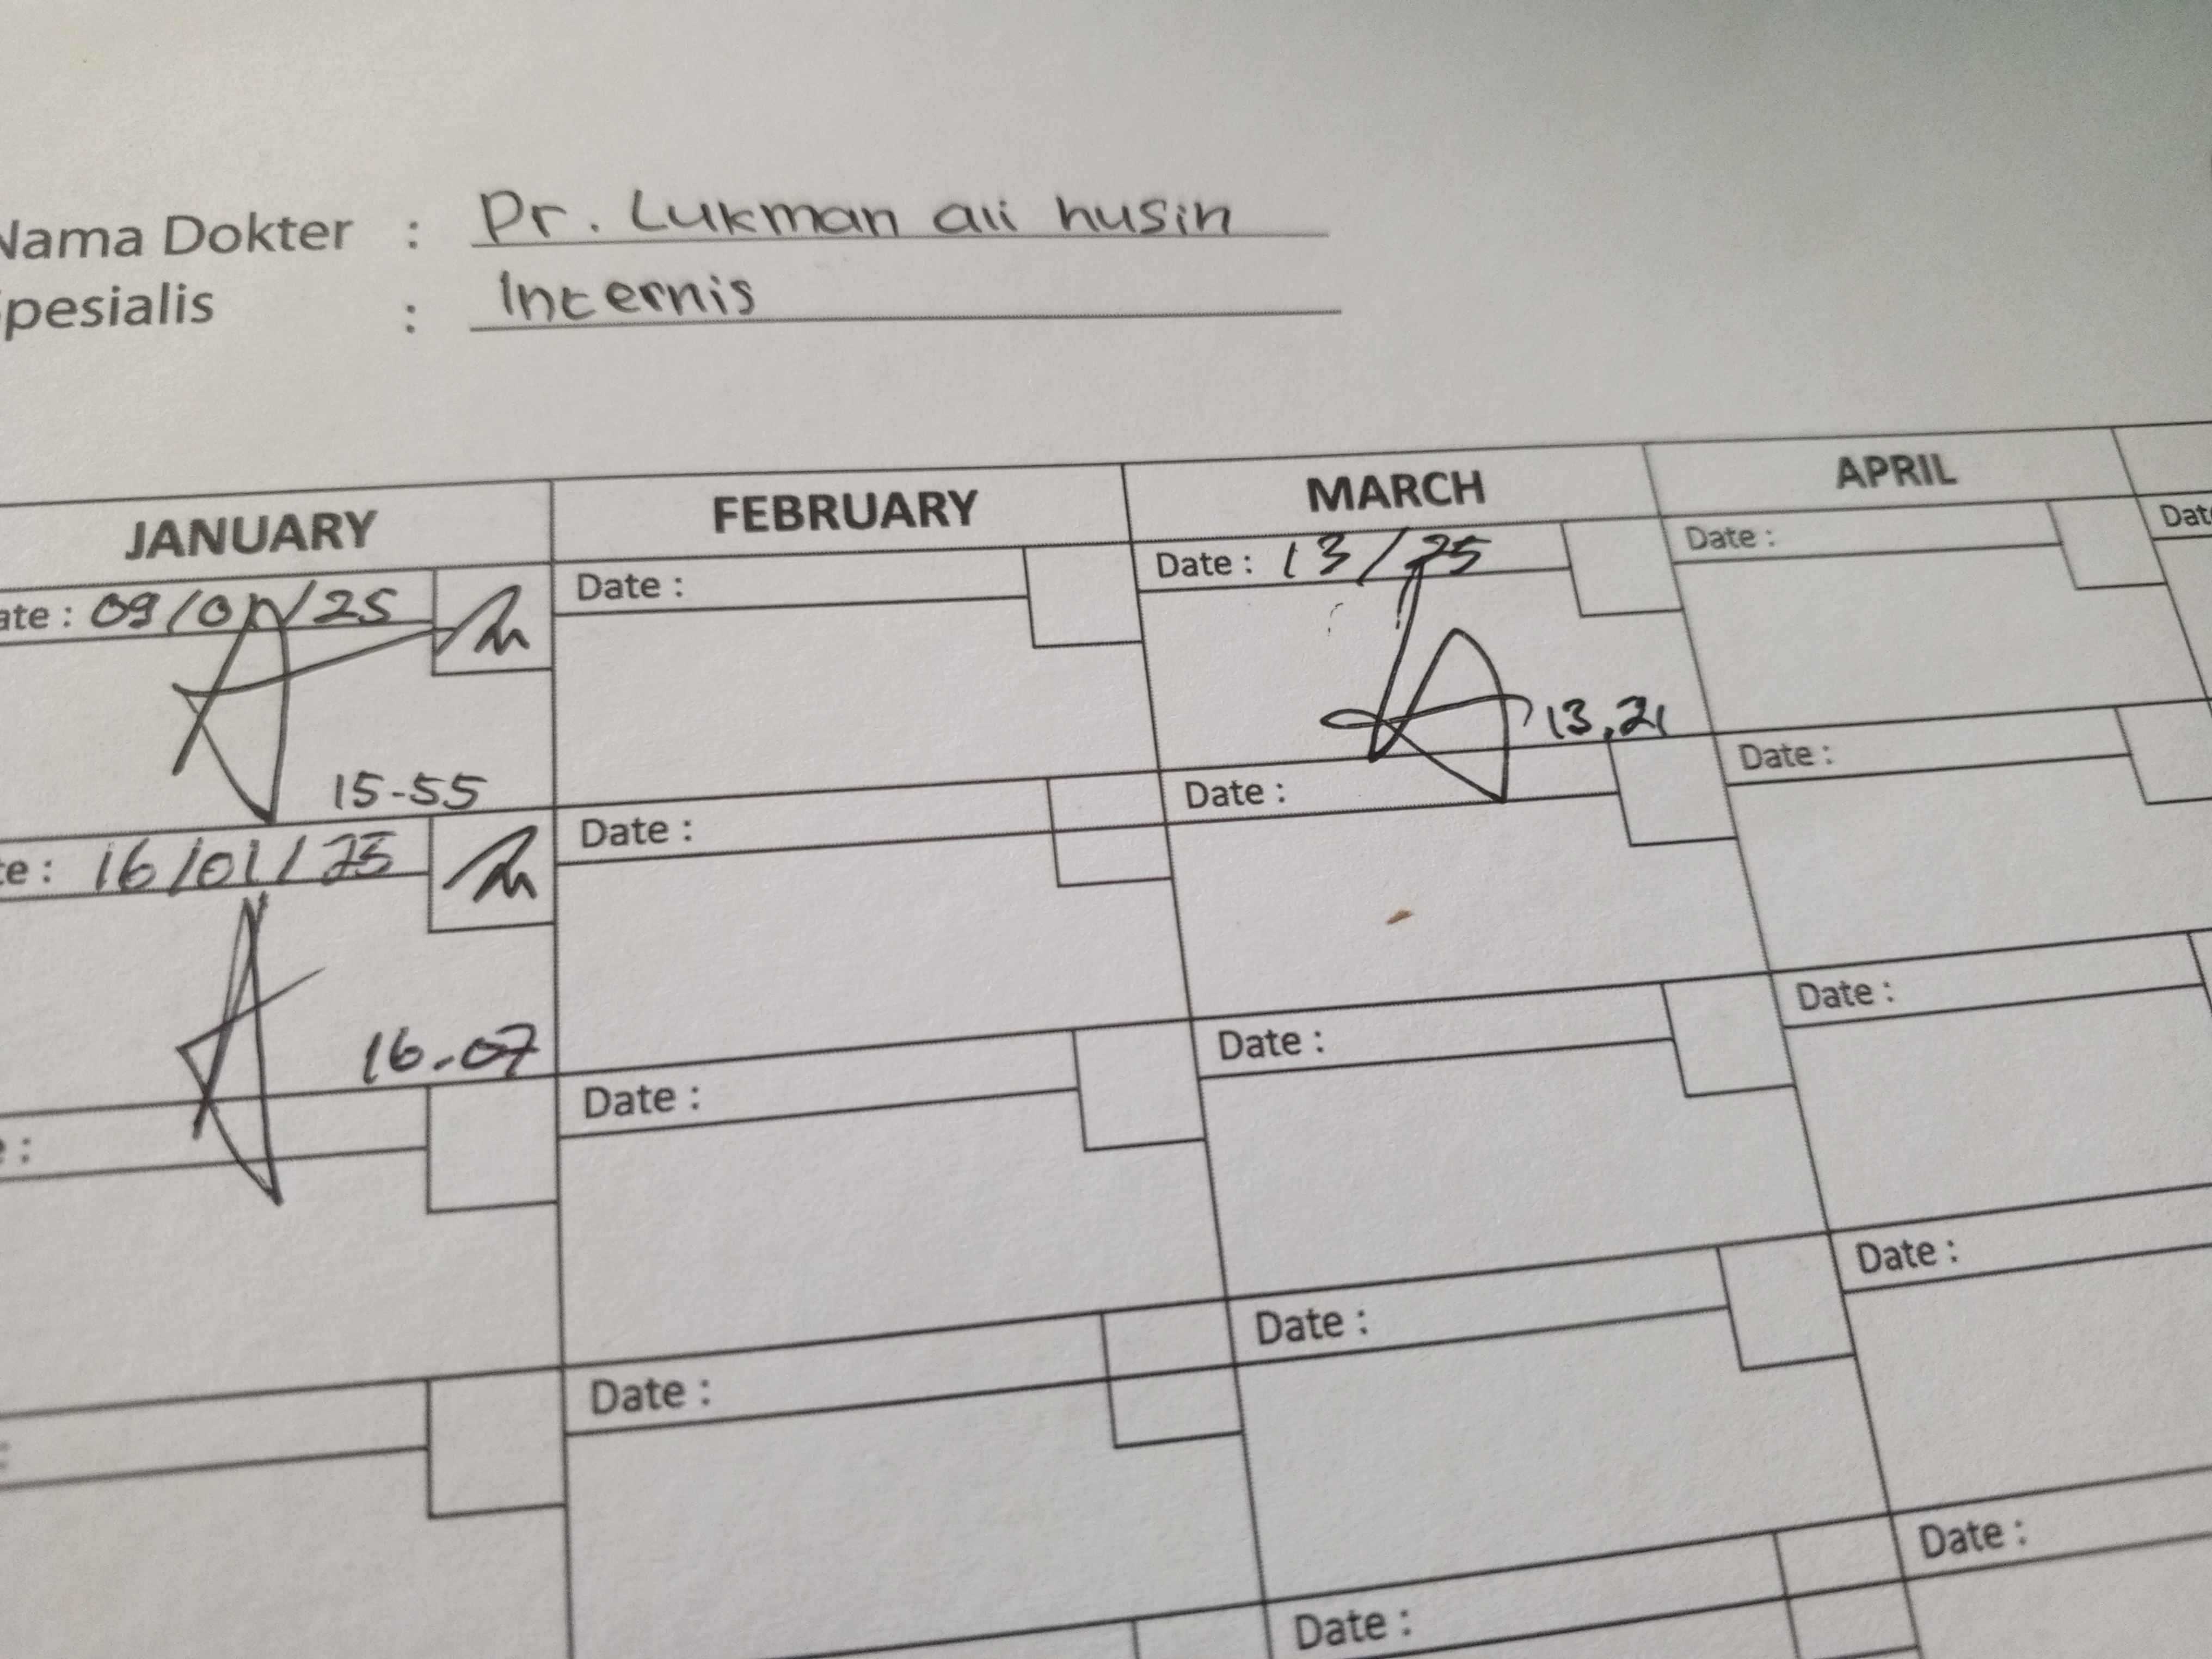 Nama Dokter : Dr. Lukman ali husin
Spesialis : Internis
JANUARY FEBRUARY MARCH APRIL
Date : 09/01/25 Date : Date : 13/ 25 Date : Date
15-55 13.21
Date : 16/01/25 Date : Date : Date :
16-07
Date : Date : Date : Date :
Date : Date : Date :
Date : Date :